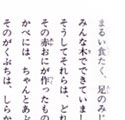 まるい食たく、足のみじ
みんな木でできていまし
そうしてそれらは、どれ
その赤おにが作ったもの
かべには、ちゃんとあぶ
そのがくぶちは、しらか